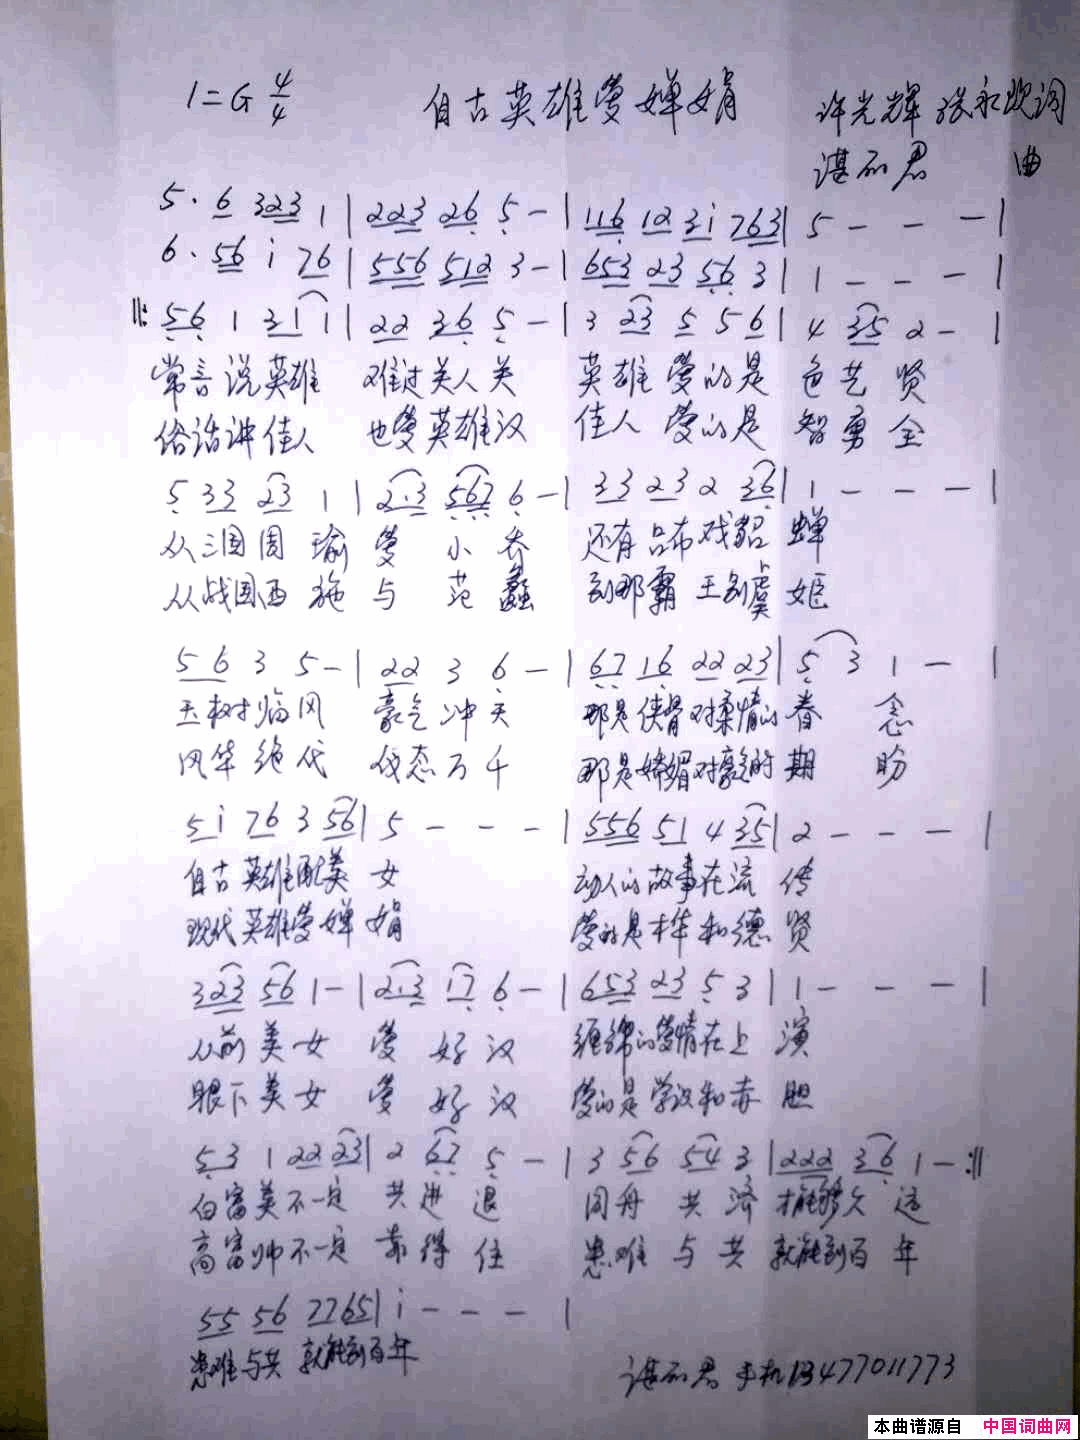 1=G 4/4 自古英雄爱婵娟 许光辉 张永欣词
谌石君 曲
5· 6 323 1 | 223 26 5 - | 116 12 31 763 | 5 - - - |
6· 56 i 76 | 556 512 3 - | 653 23 56 3 | 1 - - - |
‖: 56 1 311 | 22 36 5 - | 3 23 5 5 6 | 4 35 2 - |
常言说英雄 难过美人关 英雄爱的是 色艺贤
俗话讲佳人 也爱英雄汉 佳人爱的是 智勇全
5 33 23 1 | 2·3 567 6 - | 33 23 2 36 | 1 - - - |
从三国周瑜爱小乔 还有吕布戏貂蝉
从战国西施与范蠡 到那霸王别虞姬
56 3 5 - | 22 3 6 - | 67 16 22 23 | 5 3 1 - |
玉树临风 豪气冲天 那是侠骨对柔情的眷念
风华绝代 仪态万千 那是娇媚对豪气的期盼
5i 76 3 56 | 5 - - - | 556 51 4 35 | 2 - - - |
自古英雄配美女 动人的故事在流传
现代英雄爱婵娟 爱的是才华和德贤
323 56 1 - | 2·3 17 6 - | 653 23 5 3 | 1 - - - |
从前美女爱好汉 缠绵的爱情在上演
眼下美女爱好汉 爱的是学识和赤胆
53 1 22 23 | 2 67 5 - | 3 56 54 3 | 222 36 1 - :‖
白富美不一定 共进退 同舟共济 才能够久远
高富帅不一定 靠得住 患难与共 就能到百年
55 56 7765 | i - - - |
患难与共 就能到百年
谌石君 手机13477011773
本曲谱源自 中国词曲网